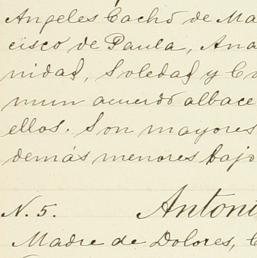 Angeles Cachó de Ma
cisco de Paula, Ana
nidad, Soledad y Cu
mun acuerdo albace
ellos. Son mayores
demás menores bajo
N. 5. Antoni
Madre de Dolores, C